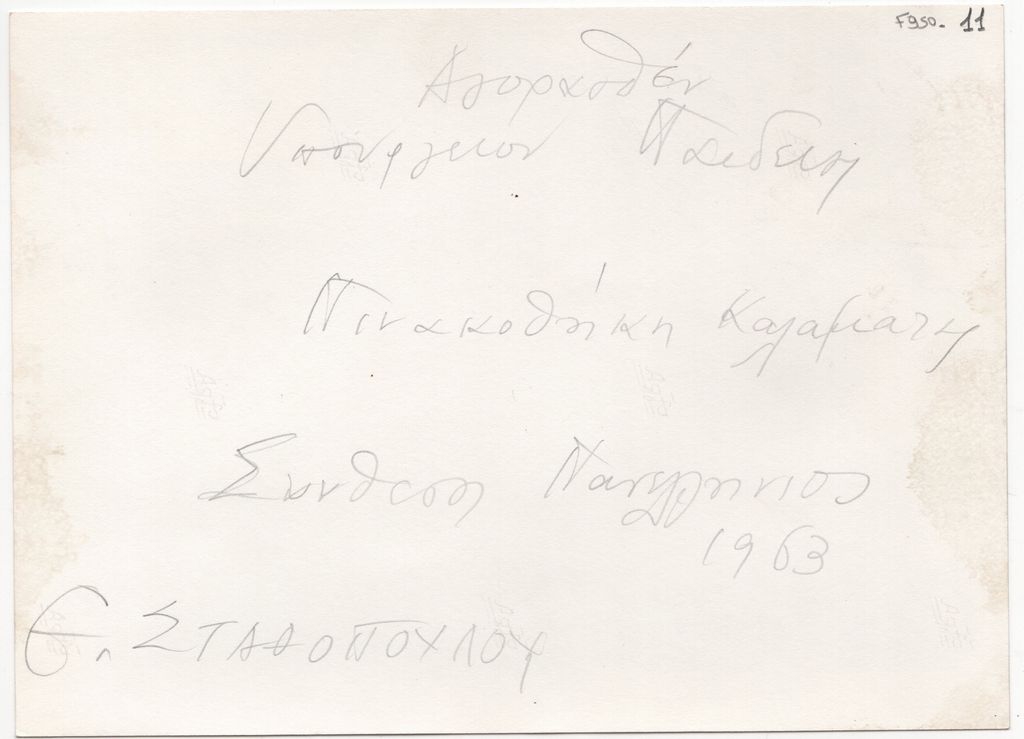 F950- 11
Αγορασθέν
Υπουργείον Παιδείας
Πινακοθήκη Καλαμάτας
Σύνθεση Πανελλήνιος
1963
Ε. ΣΤΑΘΟΠΟΥΛΟΥ